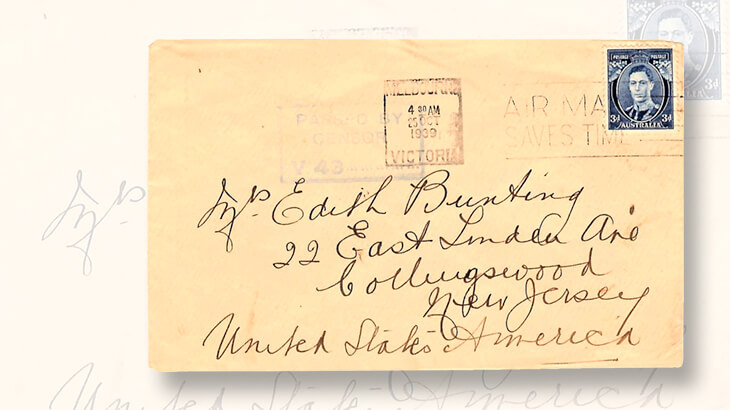 POSTAGE POSTAGE
3d 3d
AUSTRALIA
MELBOURNE
4 30 AM
25 OCT
1939
VICTORIA
AIR MA
SAVES TIME
PASSED BY
CENSOR
V 43
Mrs Edith Bunting
22 East Linden Ave
Collingswood
New Jersey
United States America